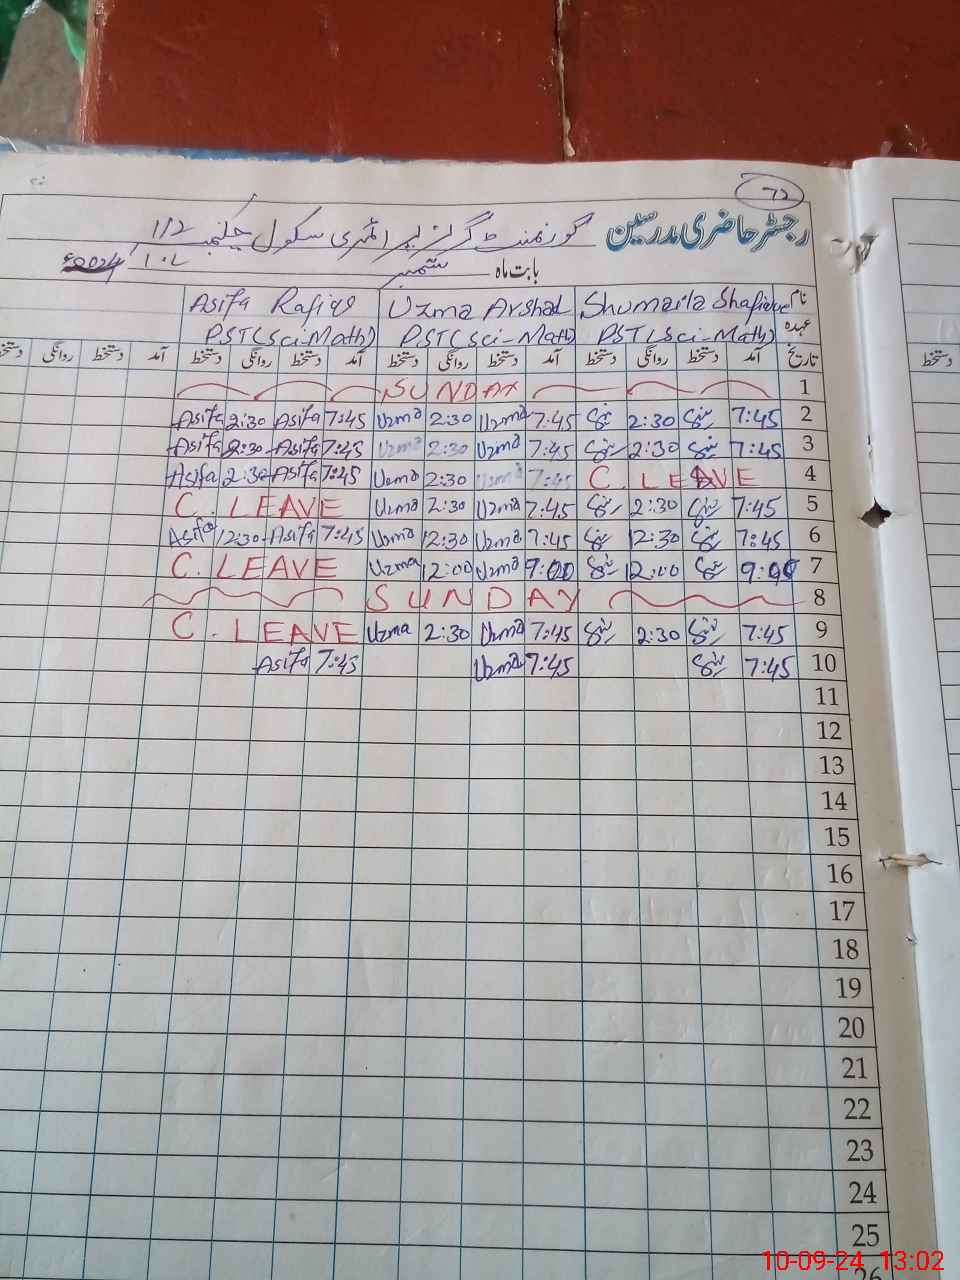 72
رجسٹر حاضری مدرسین گورنمنٹ گرلز پرائمری سکول چکنمبر 112
بابت ماہ ستمبر 2024ء
نام Shumaila Uzma Arshad Asifa Rafiq
عہدہ PST(Sci-Math) PST(Sci-Math) PST(Sci-Math)
تاریخ آمد دستخط روانگی دستخط آمد دستخط روانگی دستخط آمد دستخط روانگی دستخط آمد دستخط روانگی دستخط دستخط
1 SUNDAY
2 7:45 2:30 7:45 Uzma 2:30 Uzma 7:45 Asifa 2:30 Asifa
3 7:45 2:30 7:45 Uzma 2:30 Uzma 7:45 Asifa 2:30 Asifa
4 C. LEAVE 7:45 Uzma 2:30 Uzma 7:45 Asifa 2:30 Asifa
5 7:45 2:30 7:45 Uzma 2:30 Uzma C. LEAVE
6 7:45 12:30 7:45 Uzma 12:30 Uzma 7:45 Asifa 12:30 Asifa
7 9:00 12:00 9:00 Uzma 12:00 Uzma C. LEAVE
8 SUNDAY
9 7:45 2:30 7:45 Uzma 2:30 Uzma C. LEAVE
10 7:45 7:45 Uzma 7:45 Asifa
11
12
13
14
15
16
17
18
19
20
21
22
23
24
25
26
10-09-24 13:02